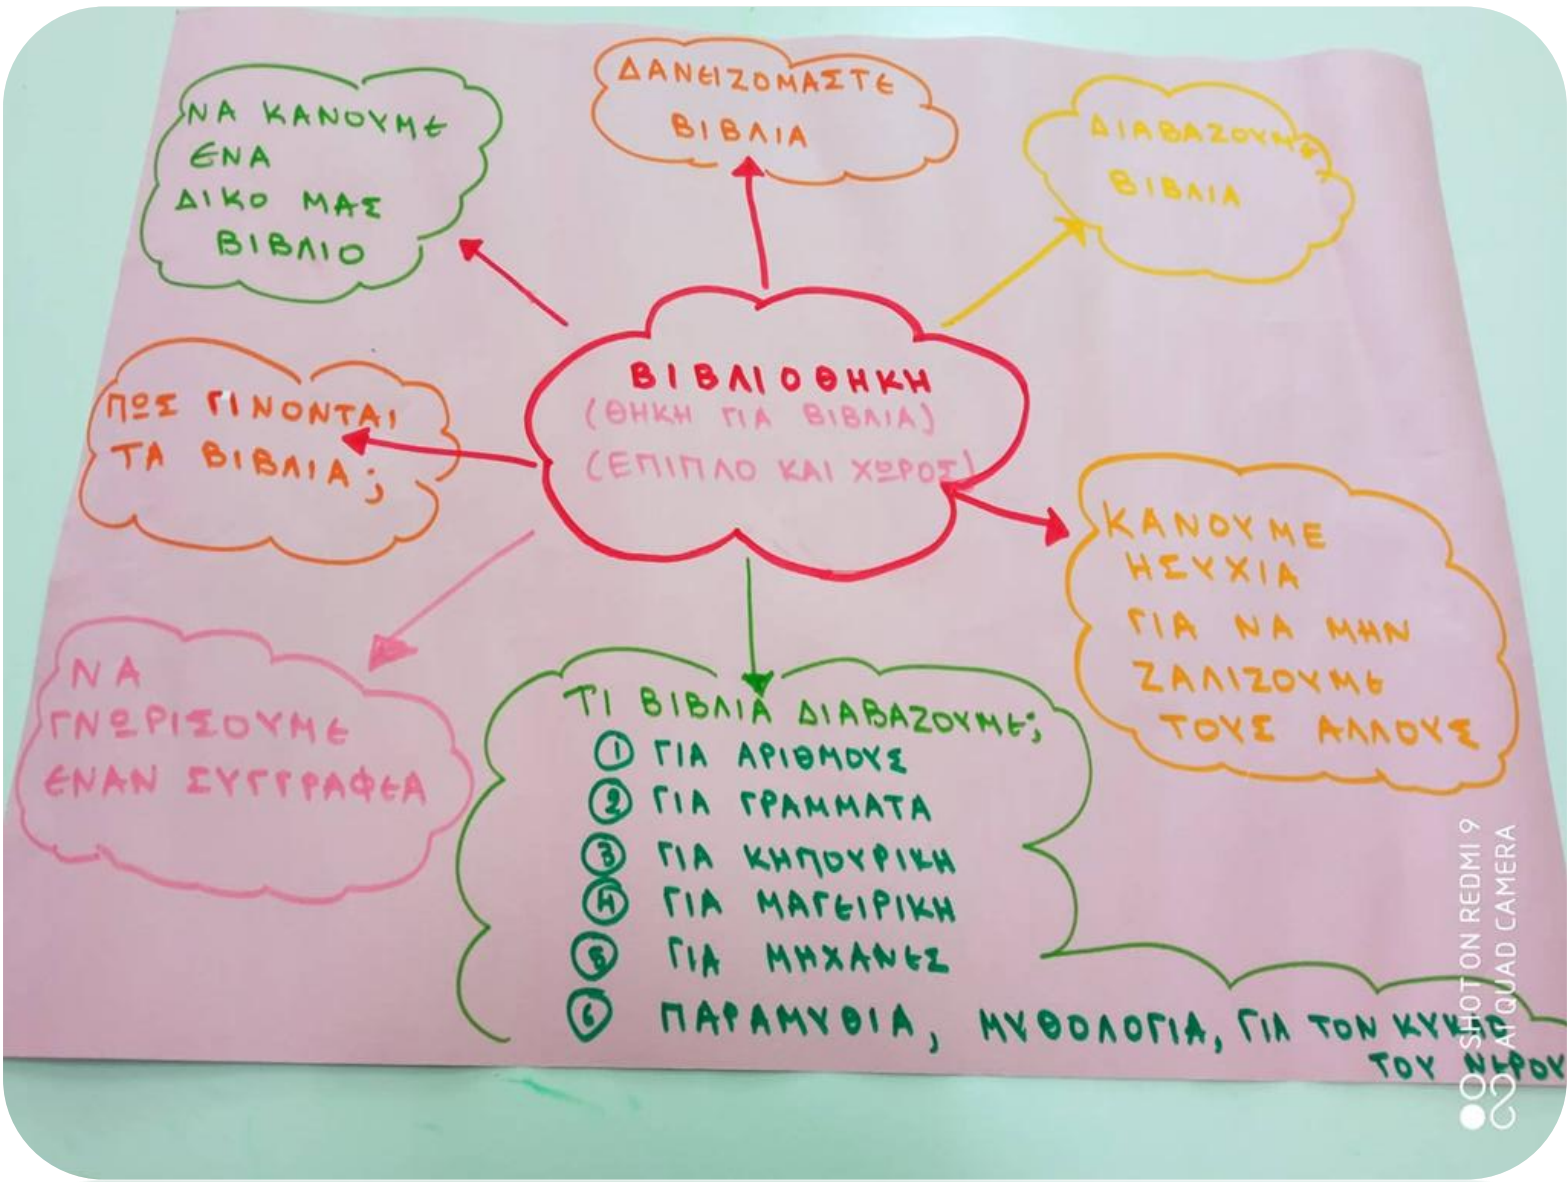 ΝΑ ΚΑΝΟΥΜΕ
ΕΝΑ
ΔΙΚΟ ΜΑΣ
ΒΙΒΛΙΟ
ΔΑΝΕΙΖΟΜΑΣΤΕ
ΒΙΒΛΙΑ
ΔΙΑΒΑΖΟΥΜΕ
ΒΙΒΛΙΑ
ΒΙΒΛΙΟΘΗΚΗ
(ΘΗΚΗ ΓΙΑ ΒΙΒΛΙΑ)
(ΕΠΙΠΛΟ ΚΑΙ ΧΩΡΟΣ)
ΠΩΣ ΓΙΝΟΝΤΑΙ
ΤΑ ΒΙΒΛΙΑ;
ΚΑΝΟΥΜΕ
ΗΣΥΧΙΑ
ΓΙΑ ΝΑ ΜΗΝ
ΖΑΛΙΖΟΥΜΕ
ΤΟΥΣ ΑΛΛΟΥΣ
ΝΑ
ΓΝΩΡΙΣΟΥΜΕ
ΕΝΑΝ ΣΥΓΓΡΑΦΕΑ
ΤΙ ΒΙΒΛΙΑ ΔΙΑΒΑΖΟΥΜΕ;
1 ΓΙΑ ΑΡΙΘΜΟΥΣ
2 ΓΙΑ ΓΡΑΜΜΑΤΑ
3 ΓΙΑ ΚΗΠΟΥΡΙΚΗ
4 ΓΙΑ ΜΑΓΕΙΡΙΚΗ
5 ΓΙΑ ΜΗΧΑΝΕΣ
6 ΠΑΡΑΜΥΘΙΑ, ΜΥΘΟΛΟΓΙΑ, ΓΙΑ ΤΟΝ ΚΥΚΛΟ
ΤΟΥ ΝΕΡΟΥ
SHOT ON REDMI 9
AI QUAD CAMERA